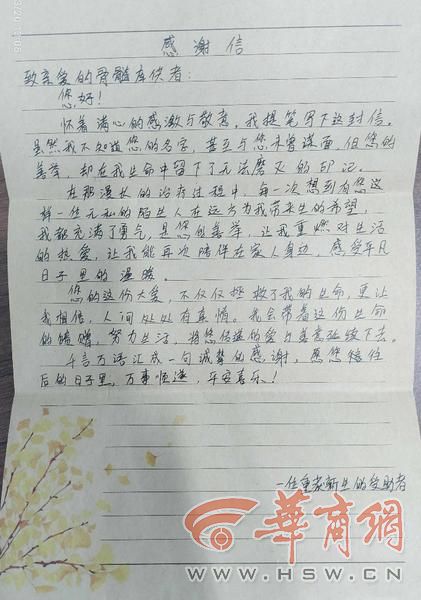 感谢信
致亲爱的骨髓库供者：
您好！
怀着满心的感激与敬意，我提笔写下这封信。
虽然我不知道您的名字，甚至与您未曾谋面，但您的
善举，却在我生命中留下了无法磨灭的印记。
在那漫长的治疗过程中，每一次想到有您这
样一位无私的陌生人在远方为我带来生的希望，
我都充满了勇气，是您的善举，让我重燃对生活
的热爱，让我能再次陪伴在家人身边，感受平凡
日子里的温暖。
您的这份大爱，不仅仅拯救了我的生命，更让
我相信，人间处处有真情。我会带着这份生命
的馈赠，努力生活，将您传递的爱与善意延续下去。
千言万语汇成一句诚挚的感谢，愿您往后
后的日子里，万事顺遂，平安喜乐！
一位重获新生的受助者
华商网
WWW.HSW.CN